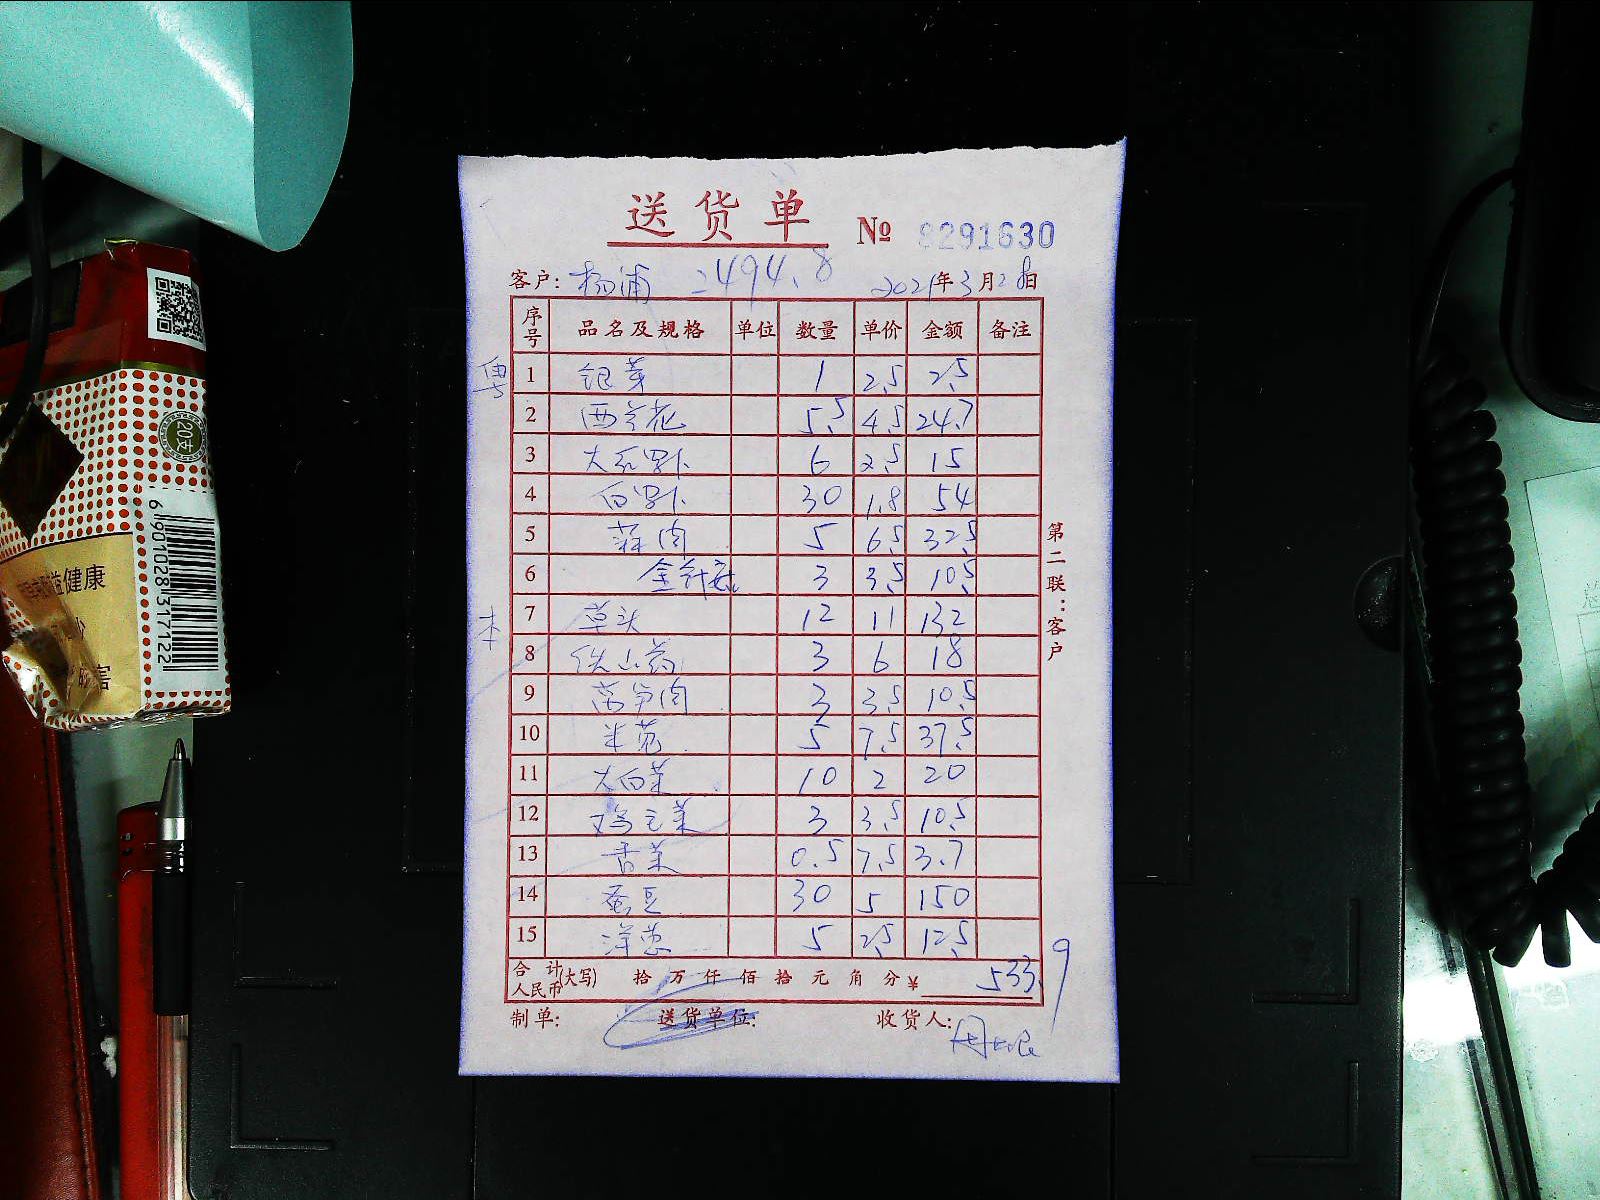 送货单 № 8291630
客户: 杨浦 2494.8 2021年3月28日
序号 品名及规格 单位 数量 单价 金额 备注
1 银芽 1 2.5 2.5
2 西兰花 5.5 4.5 24.7
3 大红罗卜 6 2.5 15
4 白罗卜 30 1.8 54
5 蒜肉 5 6.5 32.5
6 金针菇 3 3.5 10.5
本
7 草头 12 11 132
8 铁山药 3 6 18
9 莴笋肉 3 3.5 10.5
10 米苋 5 7.5 37.5
11 大白菜 10 2 20
12 鸡毛菜 3 3.5 10.5
13 香菜 0.5 7.5 3.7
14 蚕豆 30 5 150
15 洋葱 5 2.5 12.5
合计人民币(大写) 拾 万 仟 佰 拾 元 角 分 ¥ 533.9
制单: 送货单位: 收货人:
第二联:客户
20支
健康
害
6 901028 317122